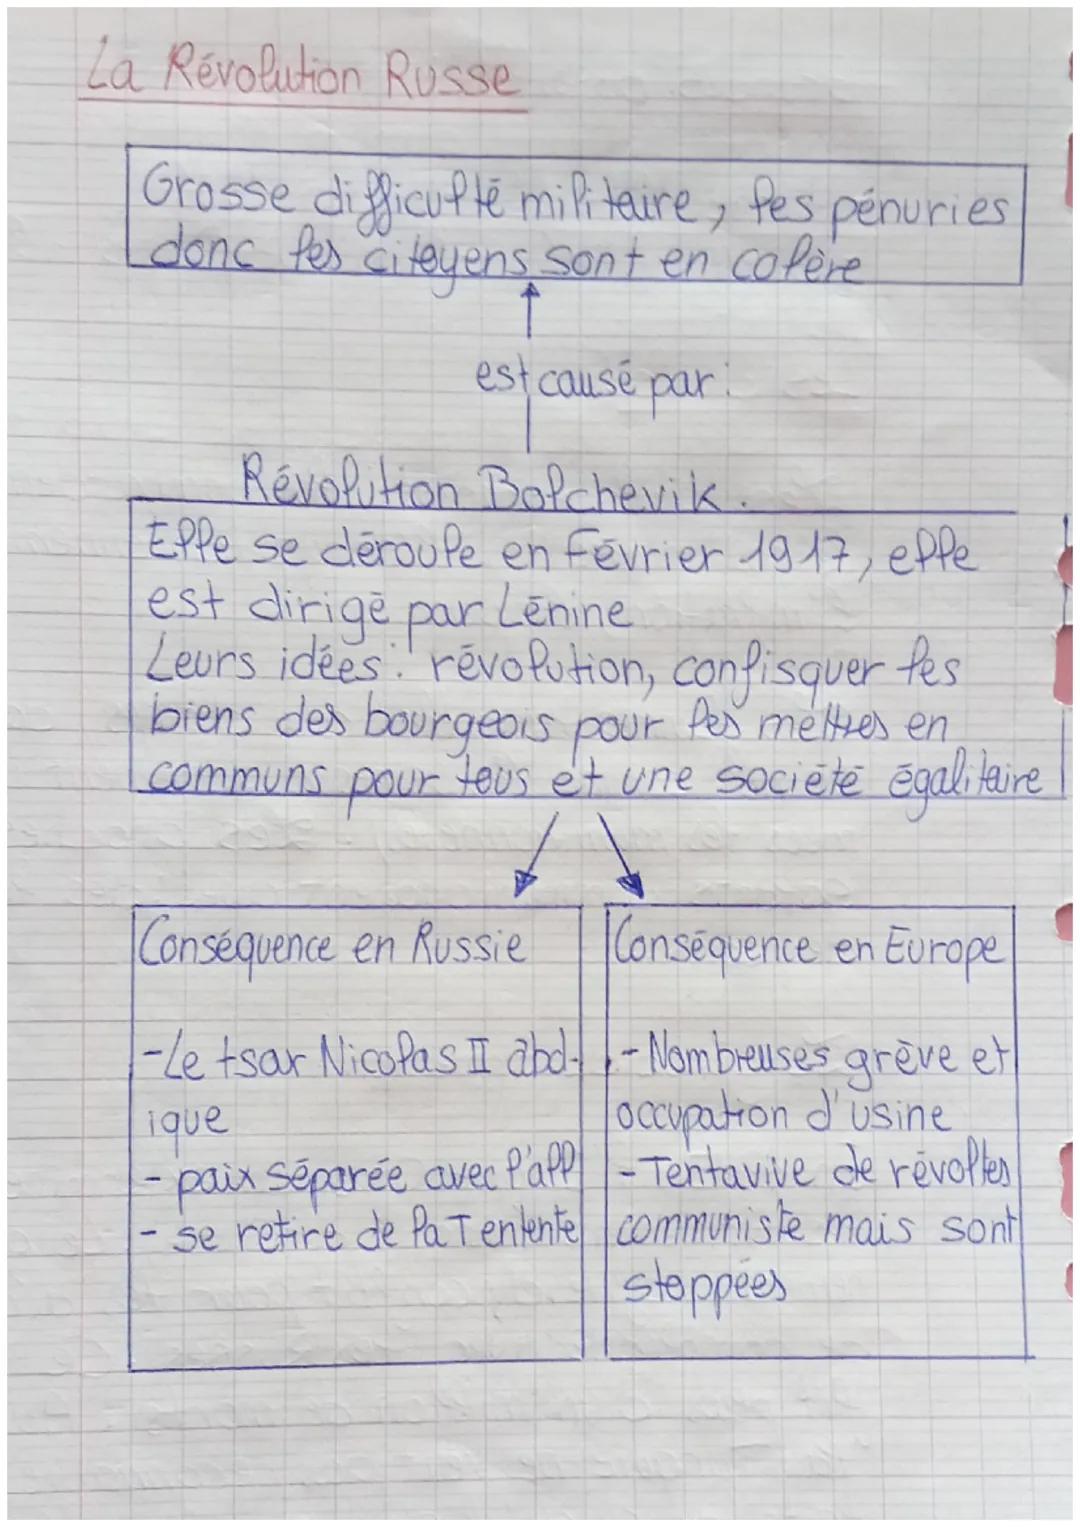 La Révolution Russe
Grosse difficulté militaire, les pénuries
donc les citoyens sont en colère
est causé par :
Révolution Bolchevik.
Elle se déroule en Février 1917, elle
est dirigé par Lénine
Leurs idées : révolution, confisquer les
biens des bourgeois pour les mettres en
communs pour tous et une société égalitaire
Conséquence en Russie
-Le tsar Nicolas II abd-
ique
- paix séparée avec l'all
- se retire de la T entente
Conséquence en Europe
- Nombreuses grève et
occupation d'usine
- Tentavive de révoltes
communiste mais sont
stoppées